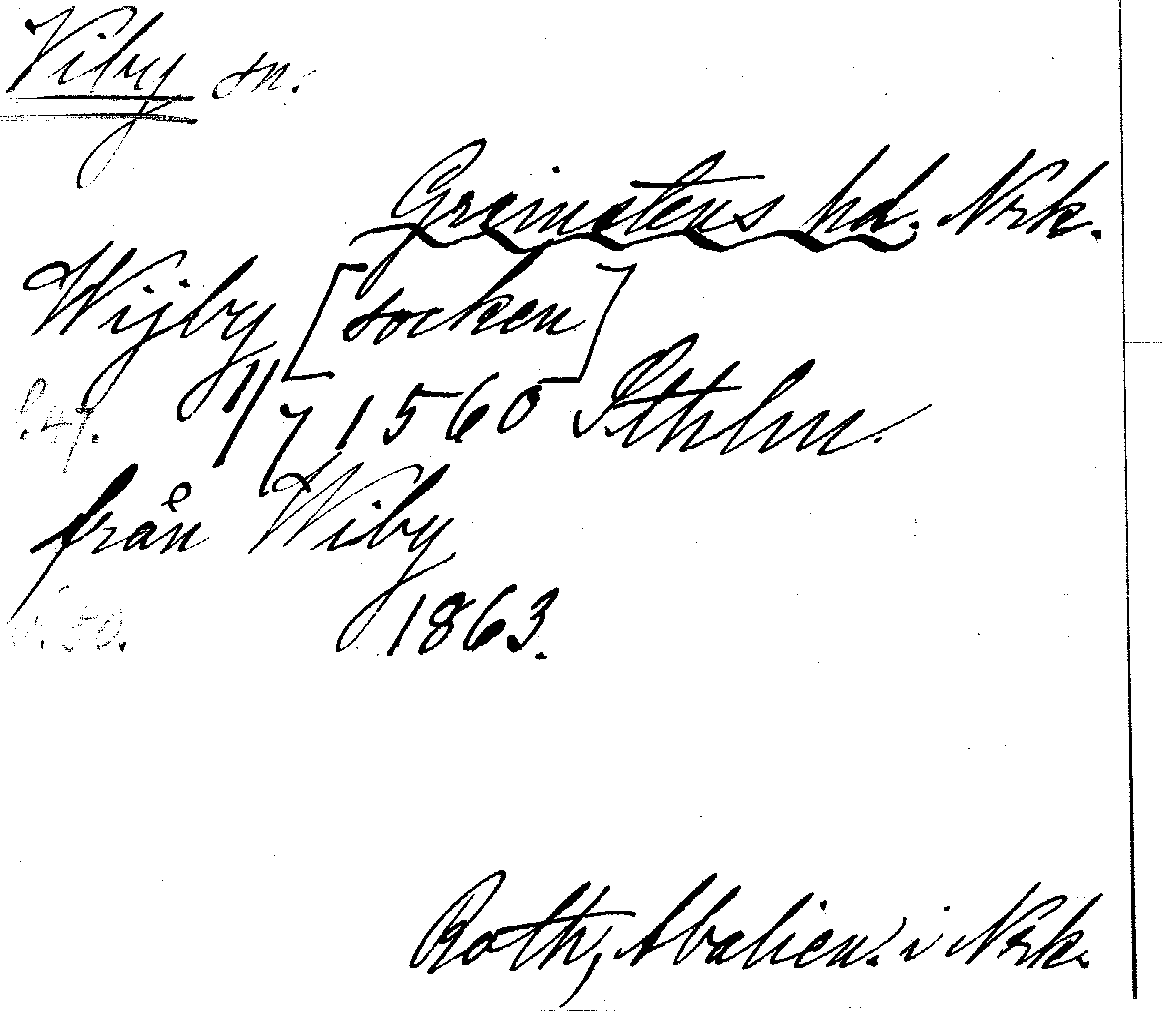 Viby sn.
Grimstens hd. Nrk.
Wijby [socken]
s. 47. 1/7 1560 Sthlm.
från Wiby
s. 50. 1863.
Roth, Abalien. i Nrk.